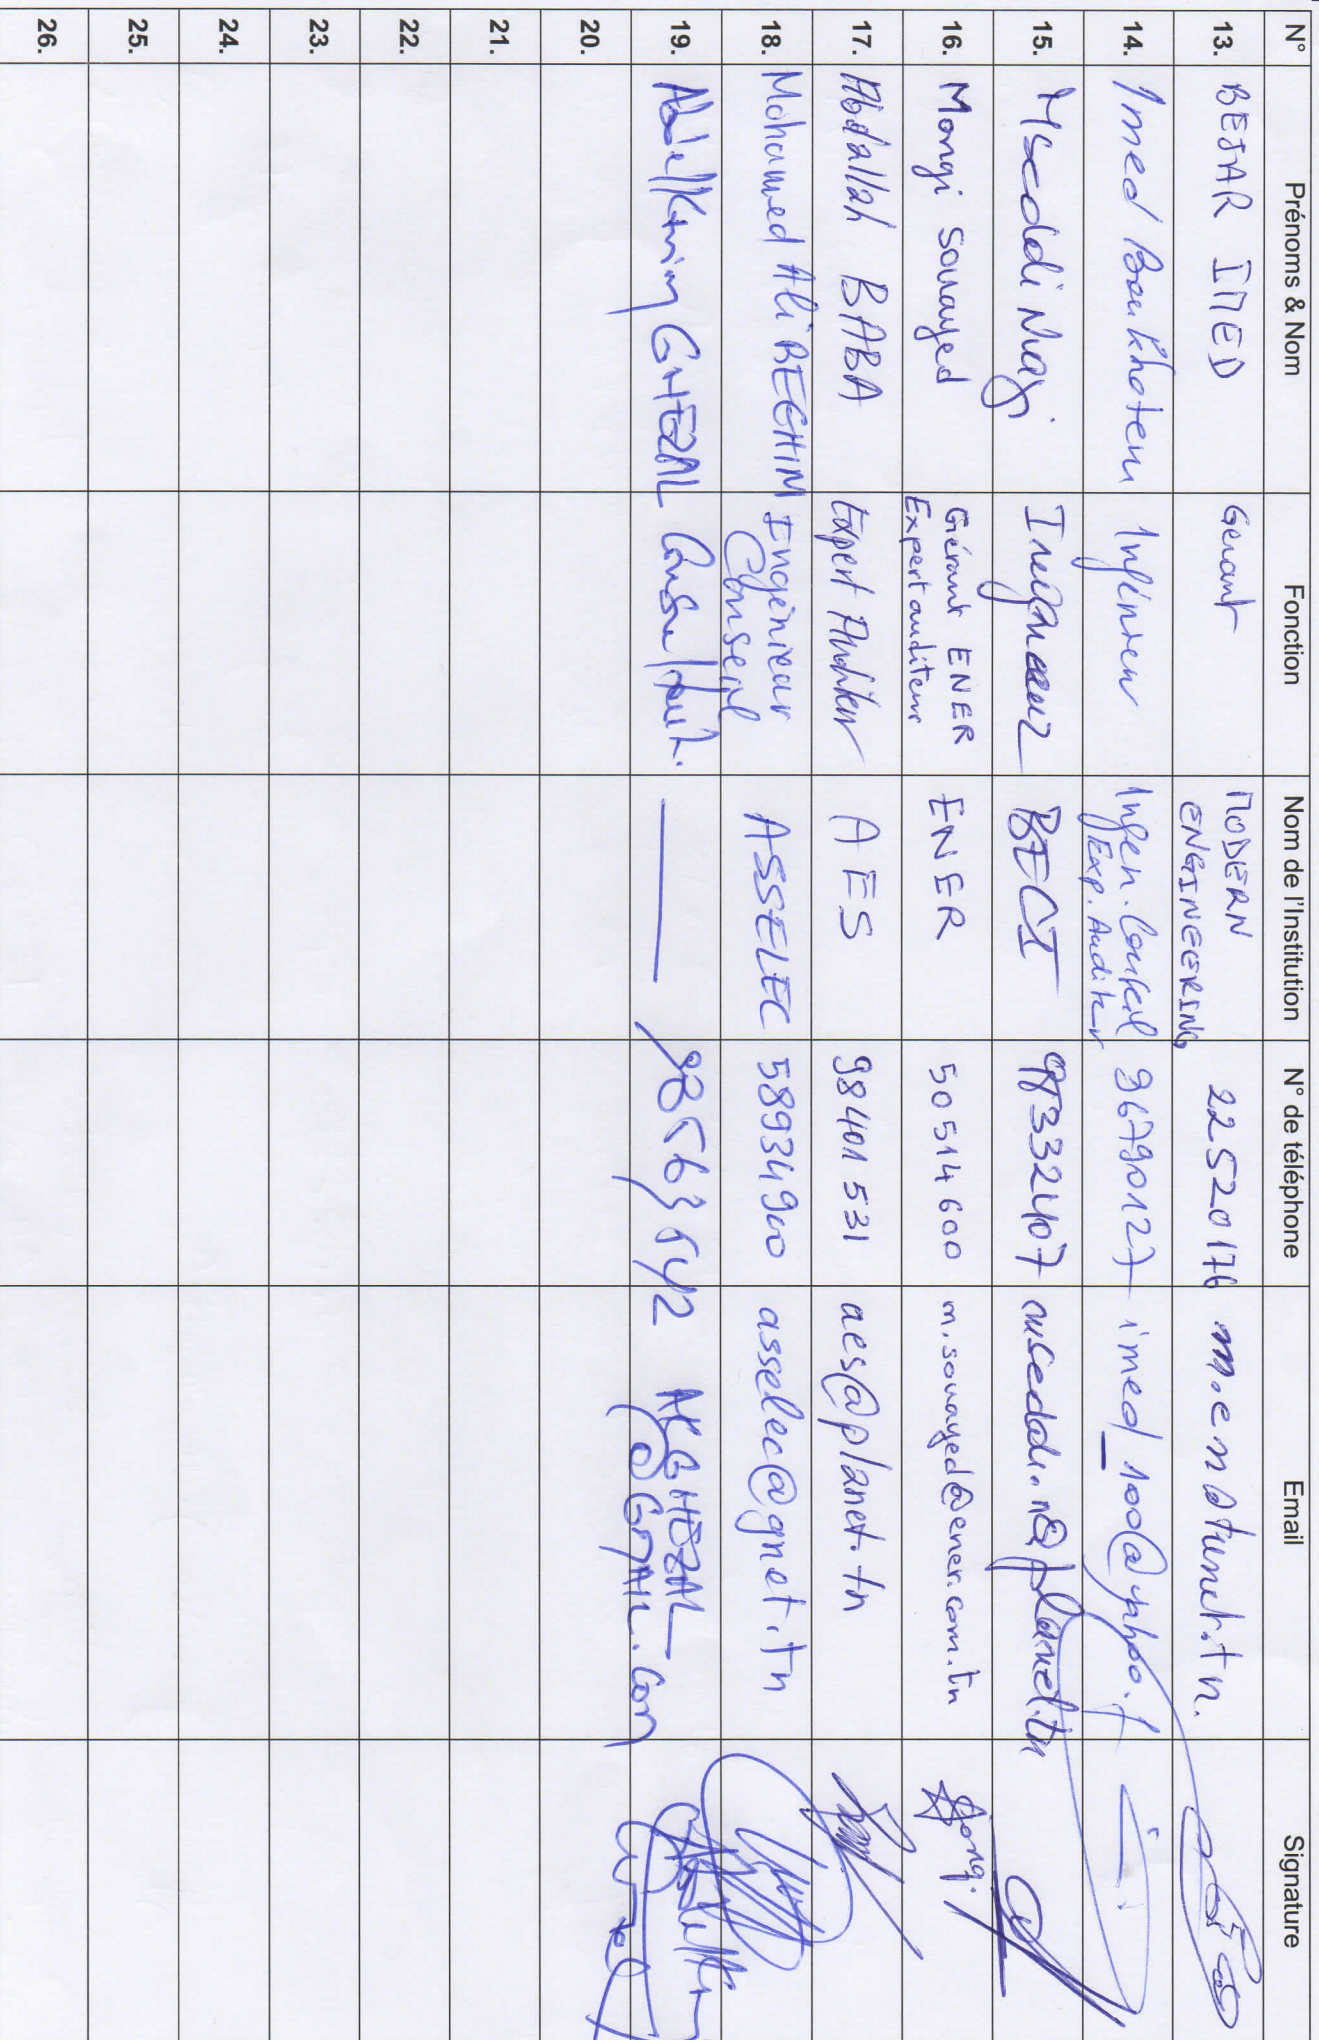 N° Prénoms & Nom Fonction Nom de l'Institution N° de téléphone Email Signature
13. BEJAR IMED Gerant MODERN ENGINEERING 22520176 m.en@tunet.tn.
14. Imed Boukhatem Ingénieur Ingen. Conseil Exp. Auditeur 96790127 imed_100@yahoo.f
15. Mseddi Naji Ingénieur BECI 98332407 mseddi.n@planet.tn
16. Mongi Souayed Gérant ENER Expert auditeur ENER 50514600 m.souayed@ener.com.tn Mongi
17. Abdallah BABA Expert Auditeur AES 98401531 aes@planet.tn
18. Mohamed Ali BEGHIM Ingénieur Conseil ASSELEC 58934900 asselec@gnet.tn
19. Abdelkrim GHEZAL Consultant. 98563542 AKGHEZAL @GMAIL.COM
20.
21.
22.
23.
24.
25.
26.